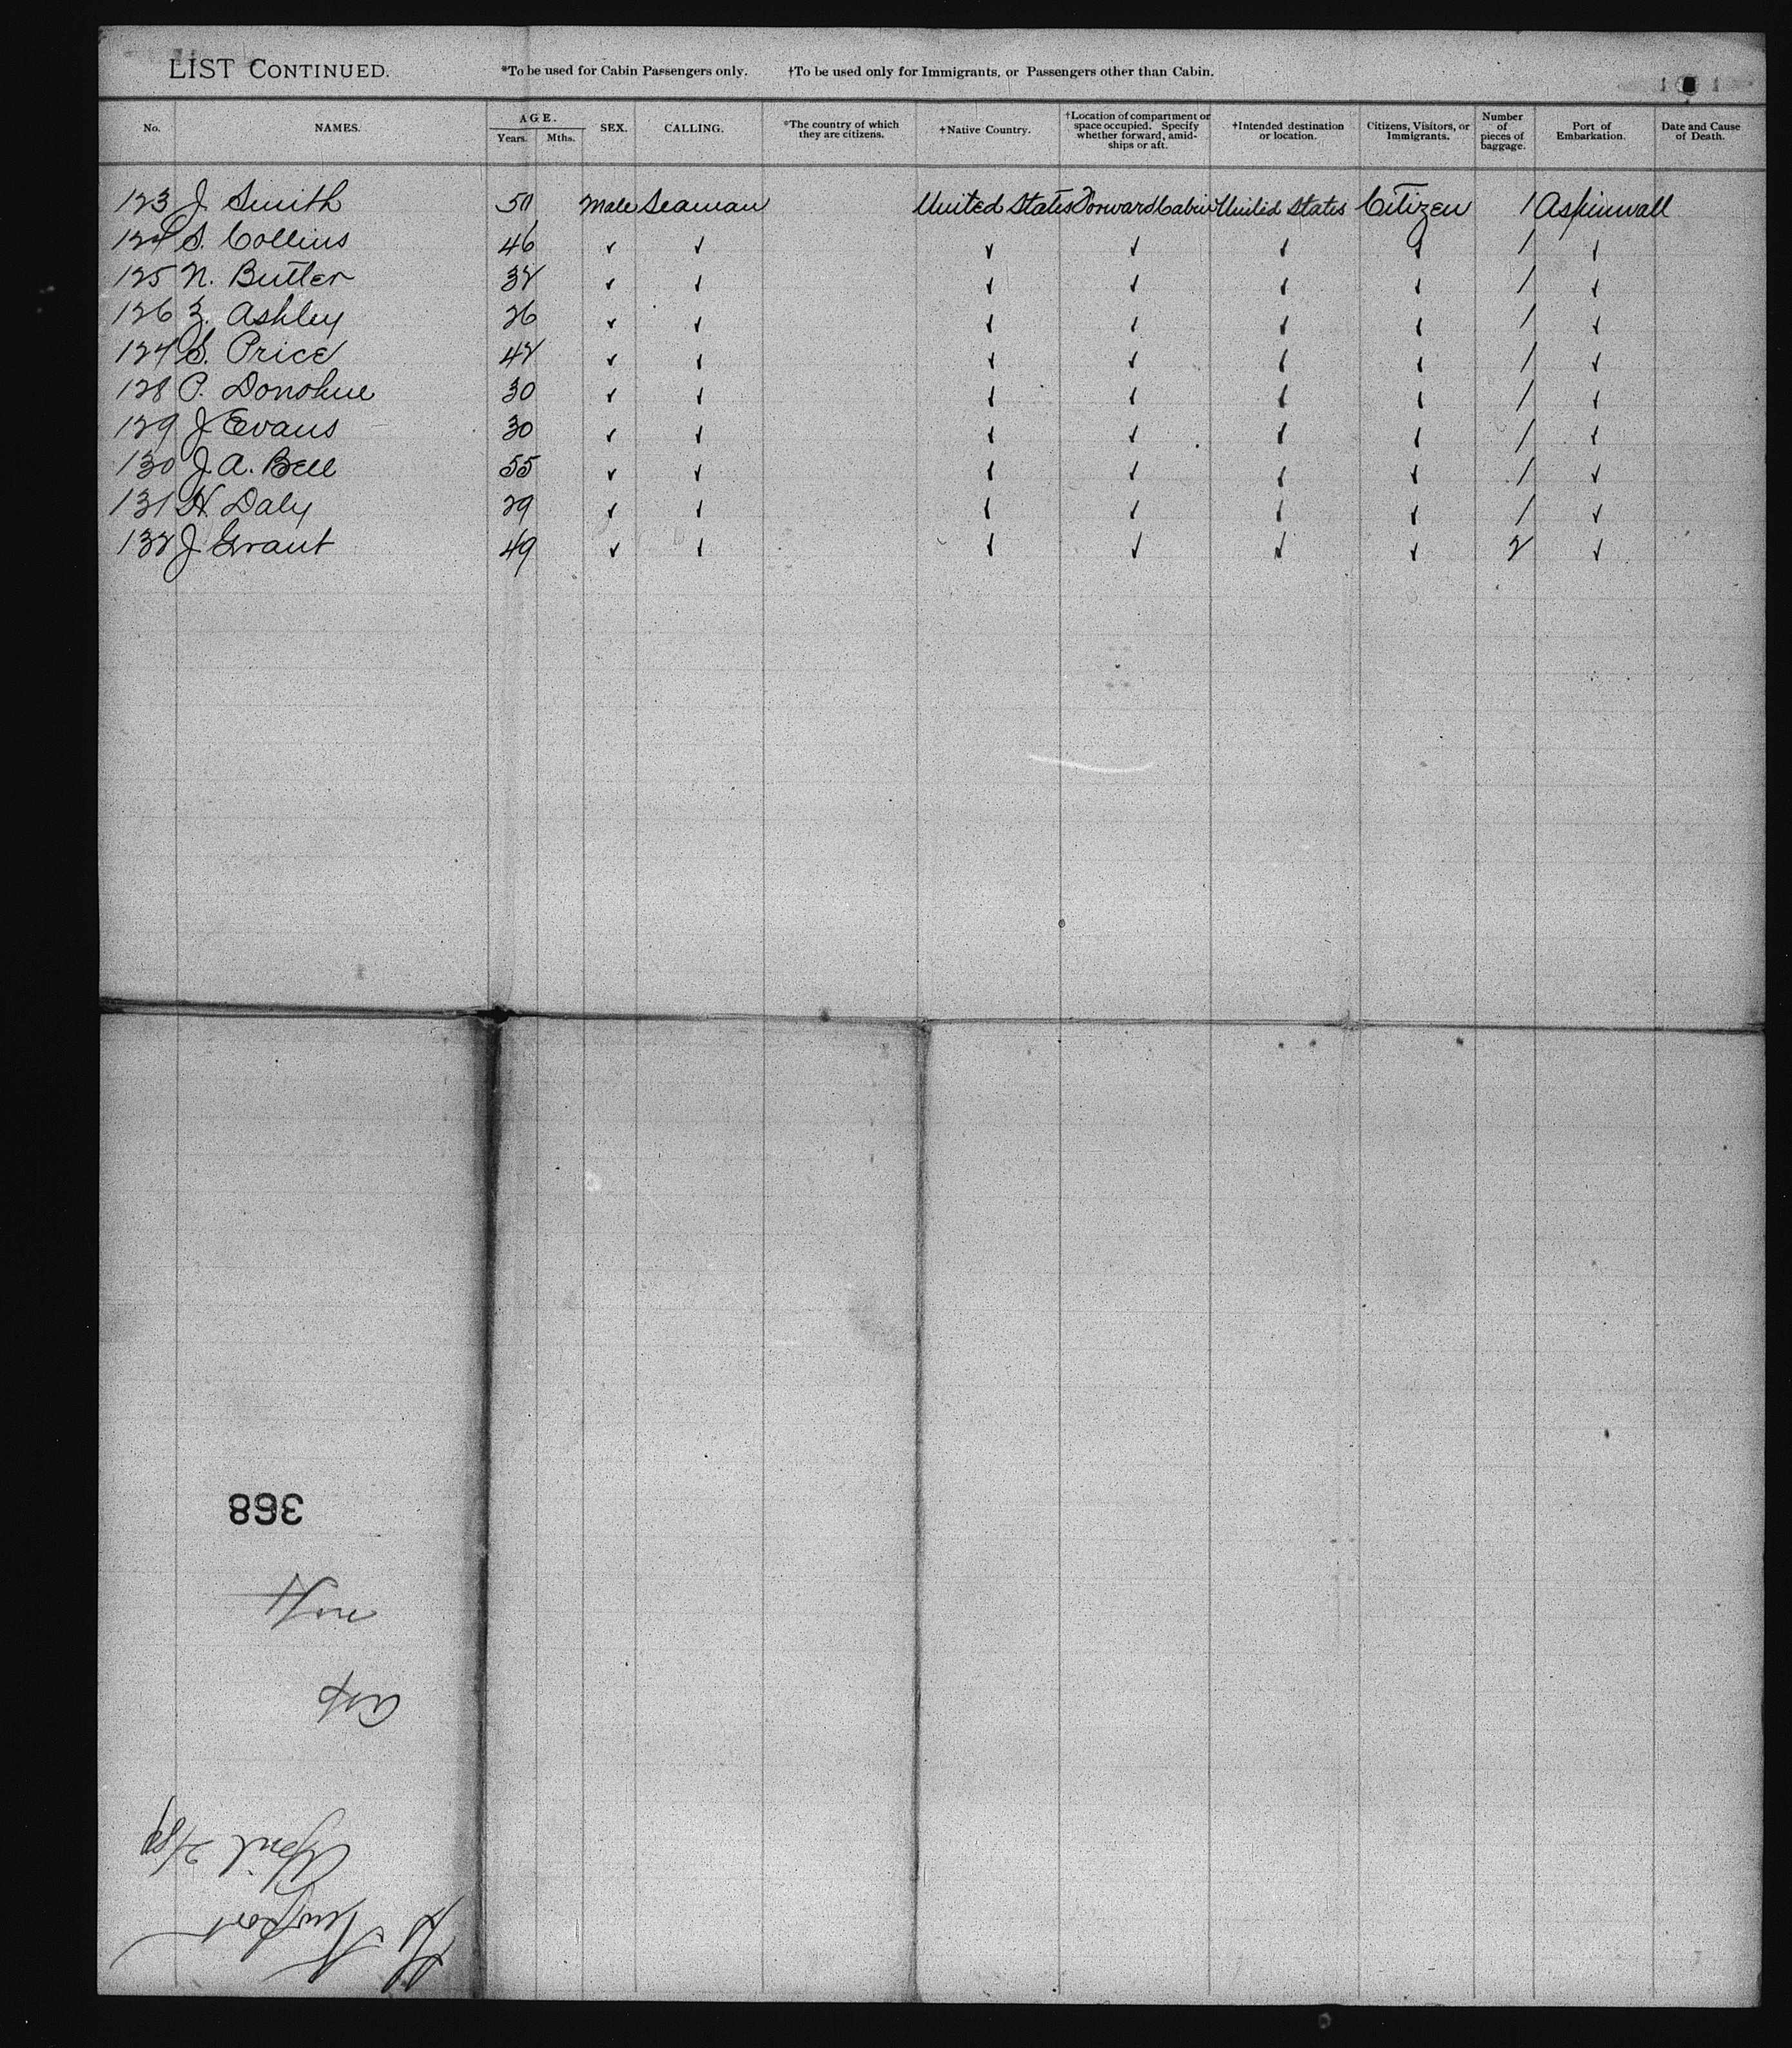 LIST CONTINUED. *To be used for Cabin Passengers only. †To be used only for Immigrants, or Passengers other than Cabin.
No. NAMES. AGE. Years. Mths. SEX. CALLING. *The country of which they are citizens. †Native Country. †Location of compartment or space occupied. Specify whether forward, amidships or aft. †Intended destination or location. Citizens, Visitors, or Immigrants. Number of pieces of baggage. Port of Embarkation. Date and Cause of Death.
123 J Smith 50 Male Seaman United States Forward Cabin United States Citizen 1 Aspinwall
124 S. Collins 46 ✓ ✓ ✓ ✓ ✓ ✓ 1 ✓
125 N. Butler 32 ✓ ✓ ✓ ✓ ✓ ✓ 1 ✓
126 Z. Ashley 26 ✓ ✓ ✓ ✓ ✓ ✓ 1 ✓
127 S. Price 42 ✓ ✓ ✓ ✓ ✓ ✓ 1 ✓
128 P. Donohue 30 ✓ ✓ ✓ ✓ ✓ ✓ 1 ✓
129 J Evans 30 ✓ ✓ ✓ ✓ ✓ ✓ 1 ✓
130 J. A. Bell 55 ✓ ✓ ✓ ✓ ✓ ✓ 1 ✓
131 H. Daly 29 ✓ ✓ ✓ ✓ ✓ ✓ 1 ✓
132 J Grant 49 ✓ ✓ ✓ ✓ ✓ ✓ 2 ✓
368
Newport
April 2/89